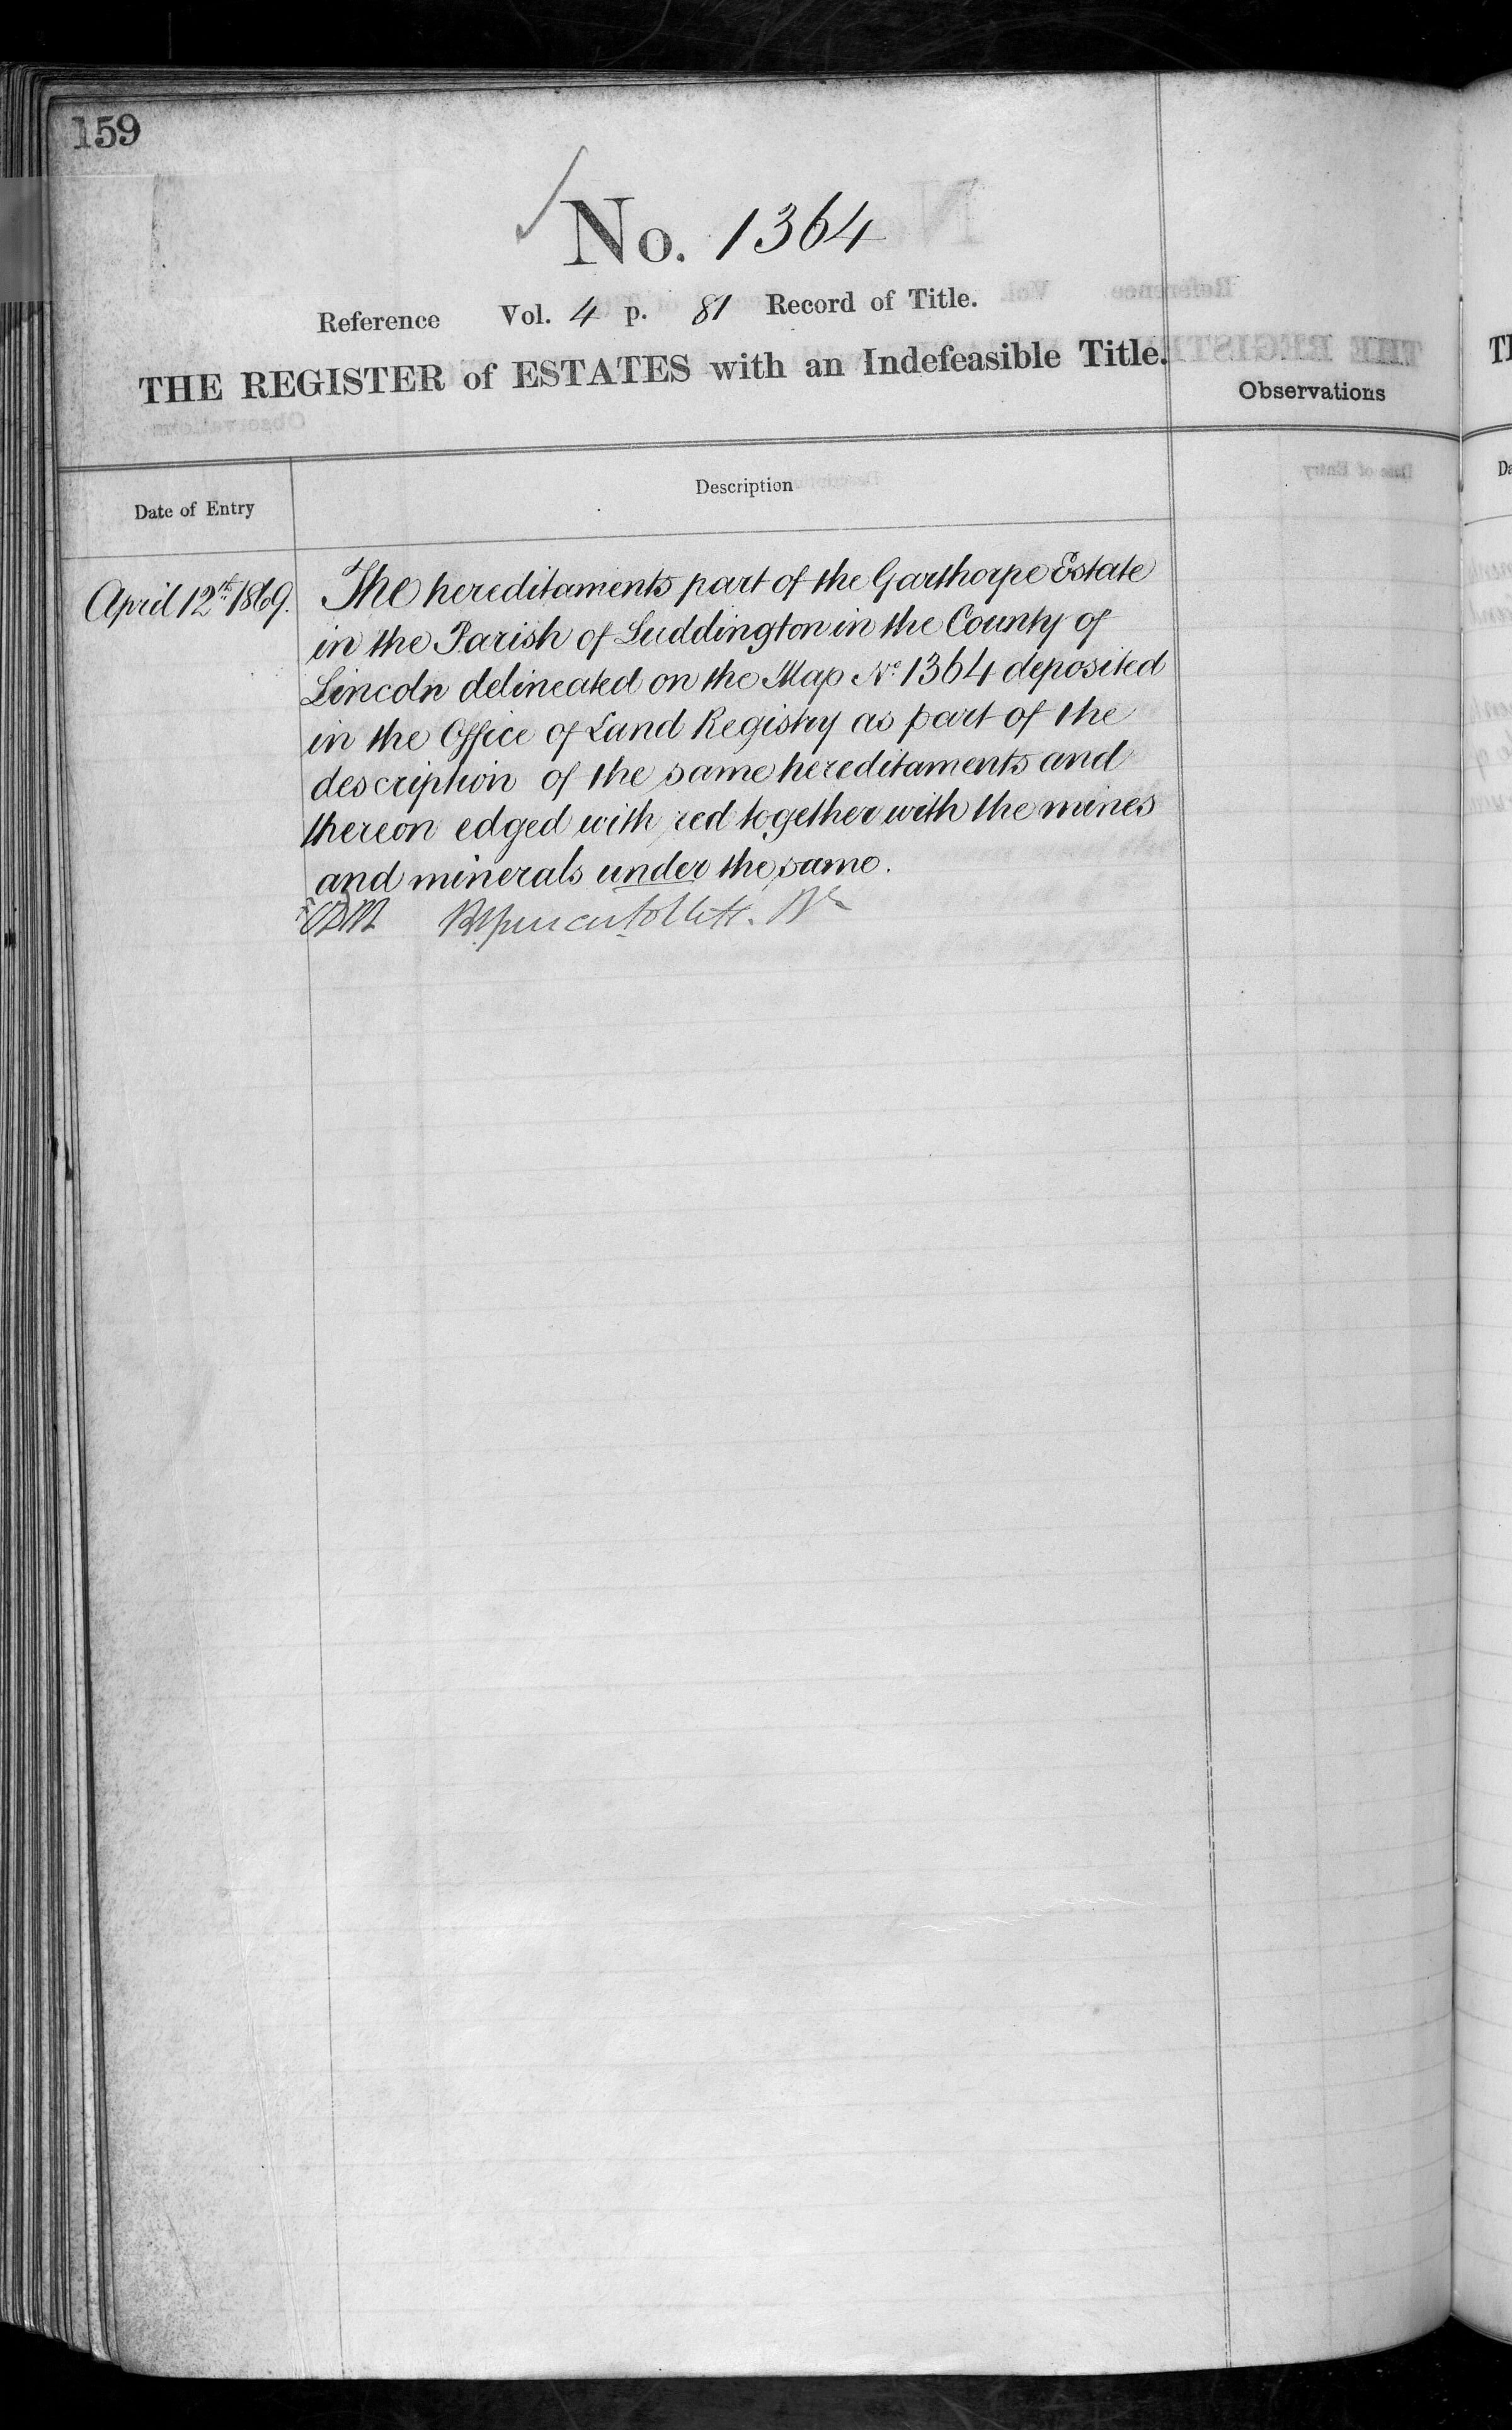 159
No. 1364
Reference Vol. 4 p. 81 Record of Title.
THE REGISTER of ESTATES with an Indefeasible Title.
Observations
Date of Entry
Description
April 12th 1869.
The hereditaments part of the Garthorpe Estate
in the Parish of Luddington in the County of
Lincoln delineated on the Map No. 1364 deposited
in the Office of Land Registry as part of the
description of the same hereditaments and
thereon edged with red together with the mines
and minerals under the same.